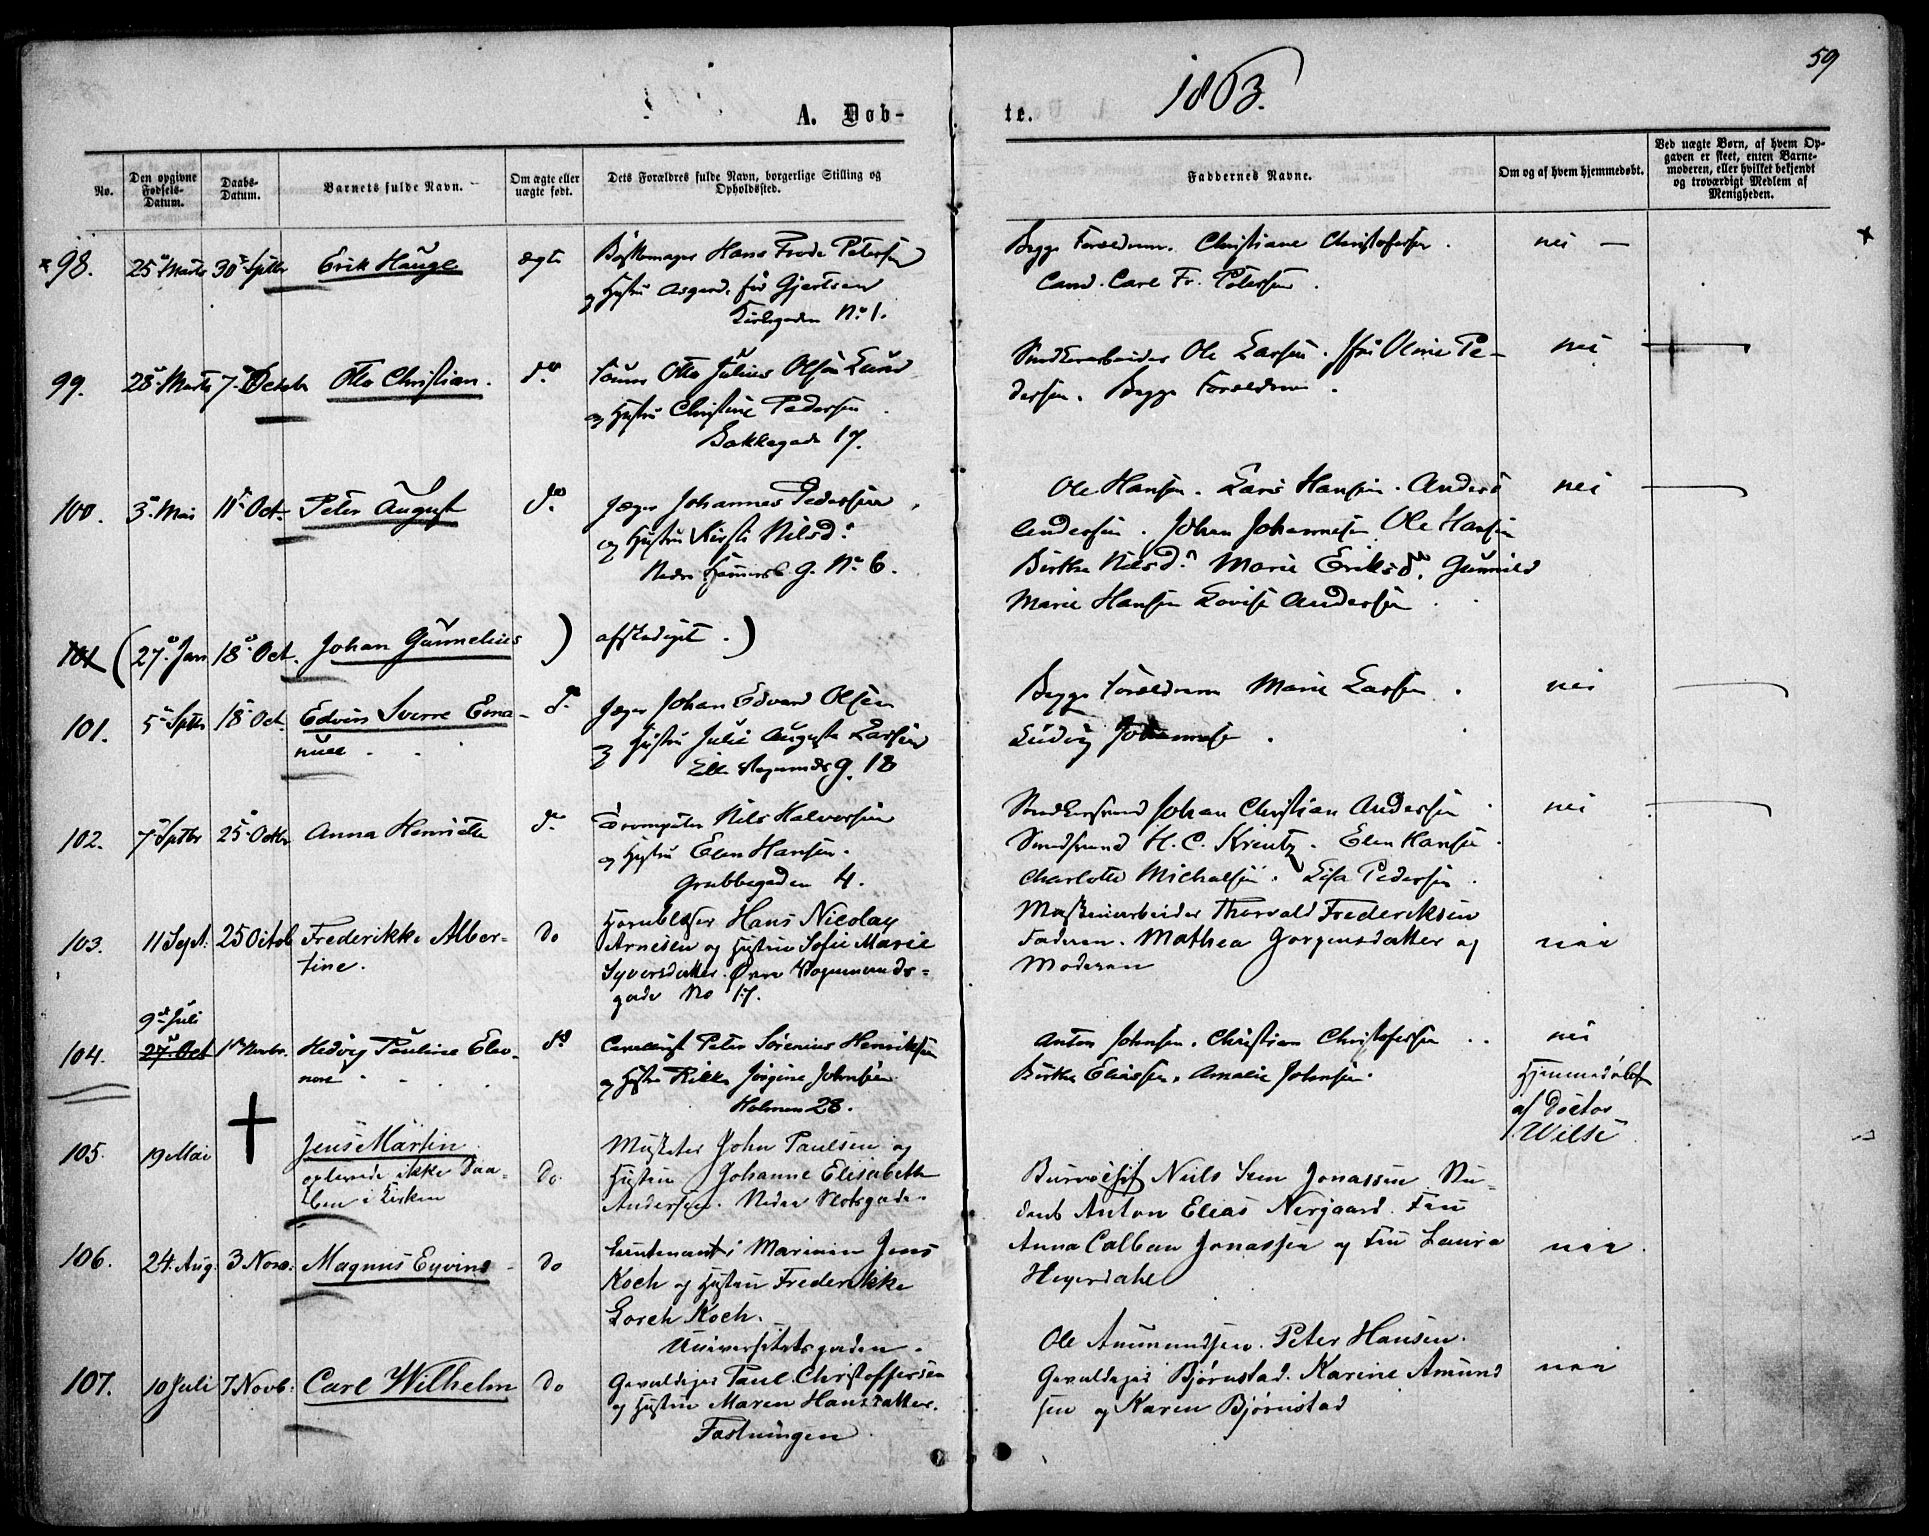 59
1863.
A. Døb-
te.
No.
Den opgivne Fødsels-Datum.
Daabs-Datum.
Barnets fulde Navn.
Om ægte eller uægte født.
Dets Forældres fulde Navn, borgerlige Stilling og Opholdssted.
Faddernes Navne.
Om og af hvem hjemmedøbt.
Ved uægte Børn, af hvem Opgaven er skeet, enten Barnemoderen, eller hvilket bekjendt og troværdigt Medlem af Menigheden.
98. 25 Marts 30 Septbr Erik Hauge ægte Bøssemager Hans Frode Petersen
og Hustru Asgerd. fød Gjertsen
Kirkegaden No 1.
Begge Forældrene. Christiane Christofersen. nei
Cand. Carl Fr. Petersen.
99. 28 Marts 7 Octobr Otto Christian. do Otto Julius Olsen Lund
og Hustru Christine Pedersen
Bakkegade 17.
Ole Larsen. Jfr Oline Pe- nei
dersen. Begge Forældrene.
100. 3 Mai 11 Oct. Peter August do Jæger Johannes Pedersen
og Hustru Kirsti Nilsd.
Nedre G. No 6.
Ole Hansen. Lars Hansen. Anders nei
Andersen. Johan Johannesen Ole Hansen
Birthe Nilsd. Marie Eriksd. Gunnild
Marie Hansen Lovise Andersen
101 (27 Jan 18 Oct. Johan Gunnelius) afskediget.)
101. 5 Septbr 18 Oct. Edvin Sverre Ema- do Jæger Johan Edvard Olsen
nuel
og Hustru Julie Augusta Larsen
G. 18
Begge Forældrene Marie Larsen. nei
Ludvig Johannesen.
102. 7 Septbr 25 Octbr Anna Henriette do Nils Halvorsen
og Hustru Elen Hansen.
Grubbegaden 4.
Johan Christian Andersen nei
H. C. Kreutz. Elen Hansen.
Charlotte Michalsen. Lisa Pedersen.
103. 11 Sept. 25 Octob Frederikke Alber- do Hornblæser Hans Nicolay
tine.
Arnesen og Hustru Sofie Marie
Syversdatter. Øvre Vognmands-
gade No 17.
Maskinarbeider Thorvald Frederiksen
Faderen. Mathea Jørgensdatter og nei
Moderen
9de Juli
104. 27 Oct 1 Novbr. Hedvig Pauline Eleo- do Peter Sørenius Henriksen
nore
og Hustru Rikke Jørgine Johnsen
Holmen 28.
Anton Johnsen. Christian Christofersen nei
Birthe Eliassen. Amalie Johnsen.
Hjemmedøbt
af Doctor
Wilse
105. 19 Mai Jens Martin do Musketer John Paulsen og
oplevede ikke Daa-
ben i Kirken
Hustru Johanne Elisabeth
Andersen. Nedre Slotsgade.
106. 24 Aug. 3 Novb. Magnus Eyvind do Lieutenant i Marinen Jens
Koch og Hustru Frederikke
Lorch Koch.
Universitetsgaden.
Bureauchef Niels Sem Jonassen Stu-
dent Anton Elias Nergaard. Fru
Anna Colban Jonassen og Fru Laura nei
Heyerdahl
107. 10 Juli 7 Novb. Carl Wilhelm do Gevaldiger Paul Christoffersen
og Hustru Maren Hansdatter.
Fæstningen
Ole Amundsen. Peter Hansen.
Gevaldiger Bjørnstad. Karine Amund nei
sen og Karen Bjørnstad